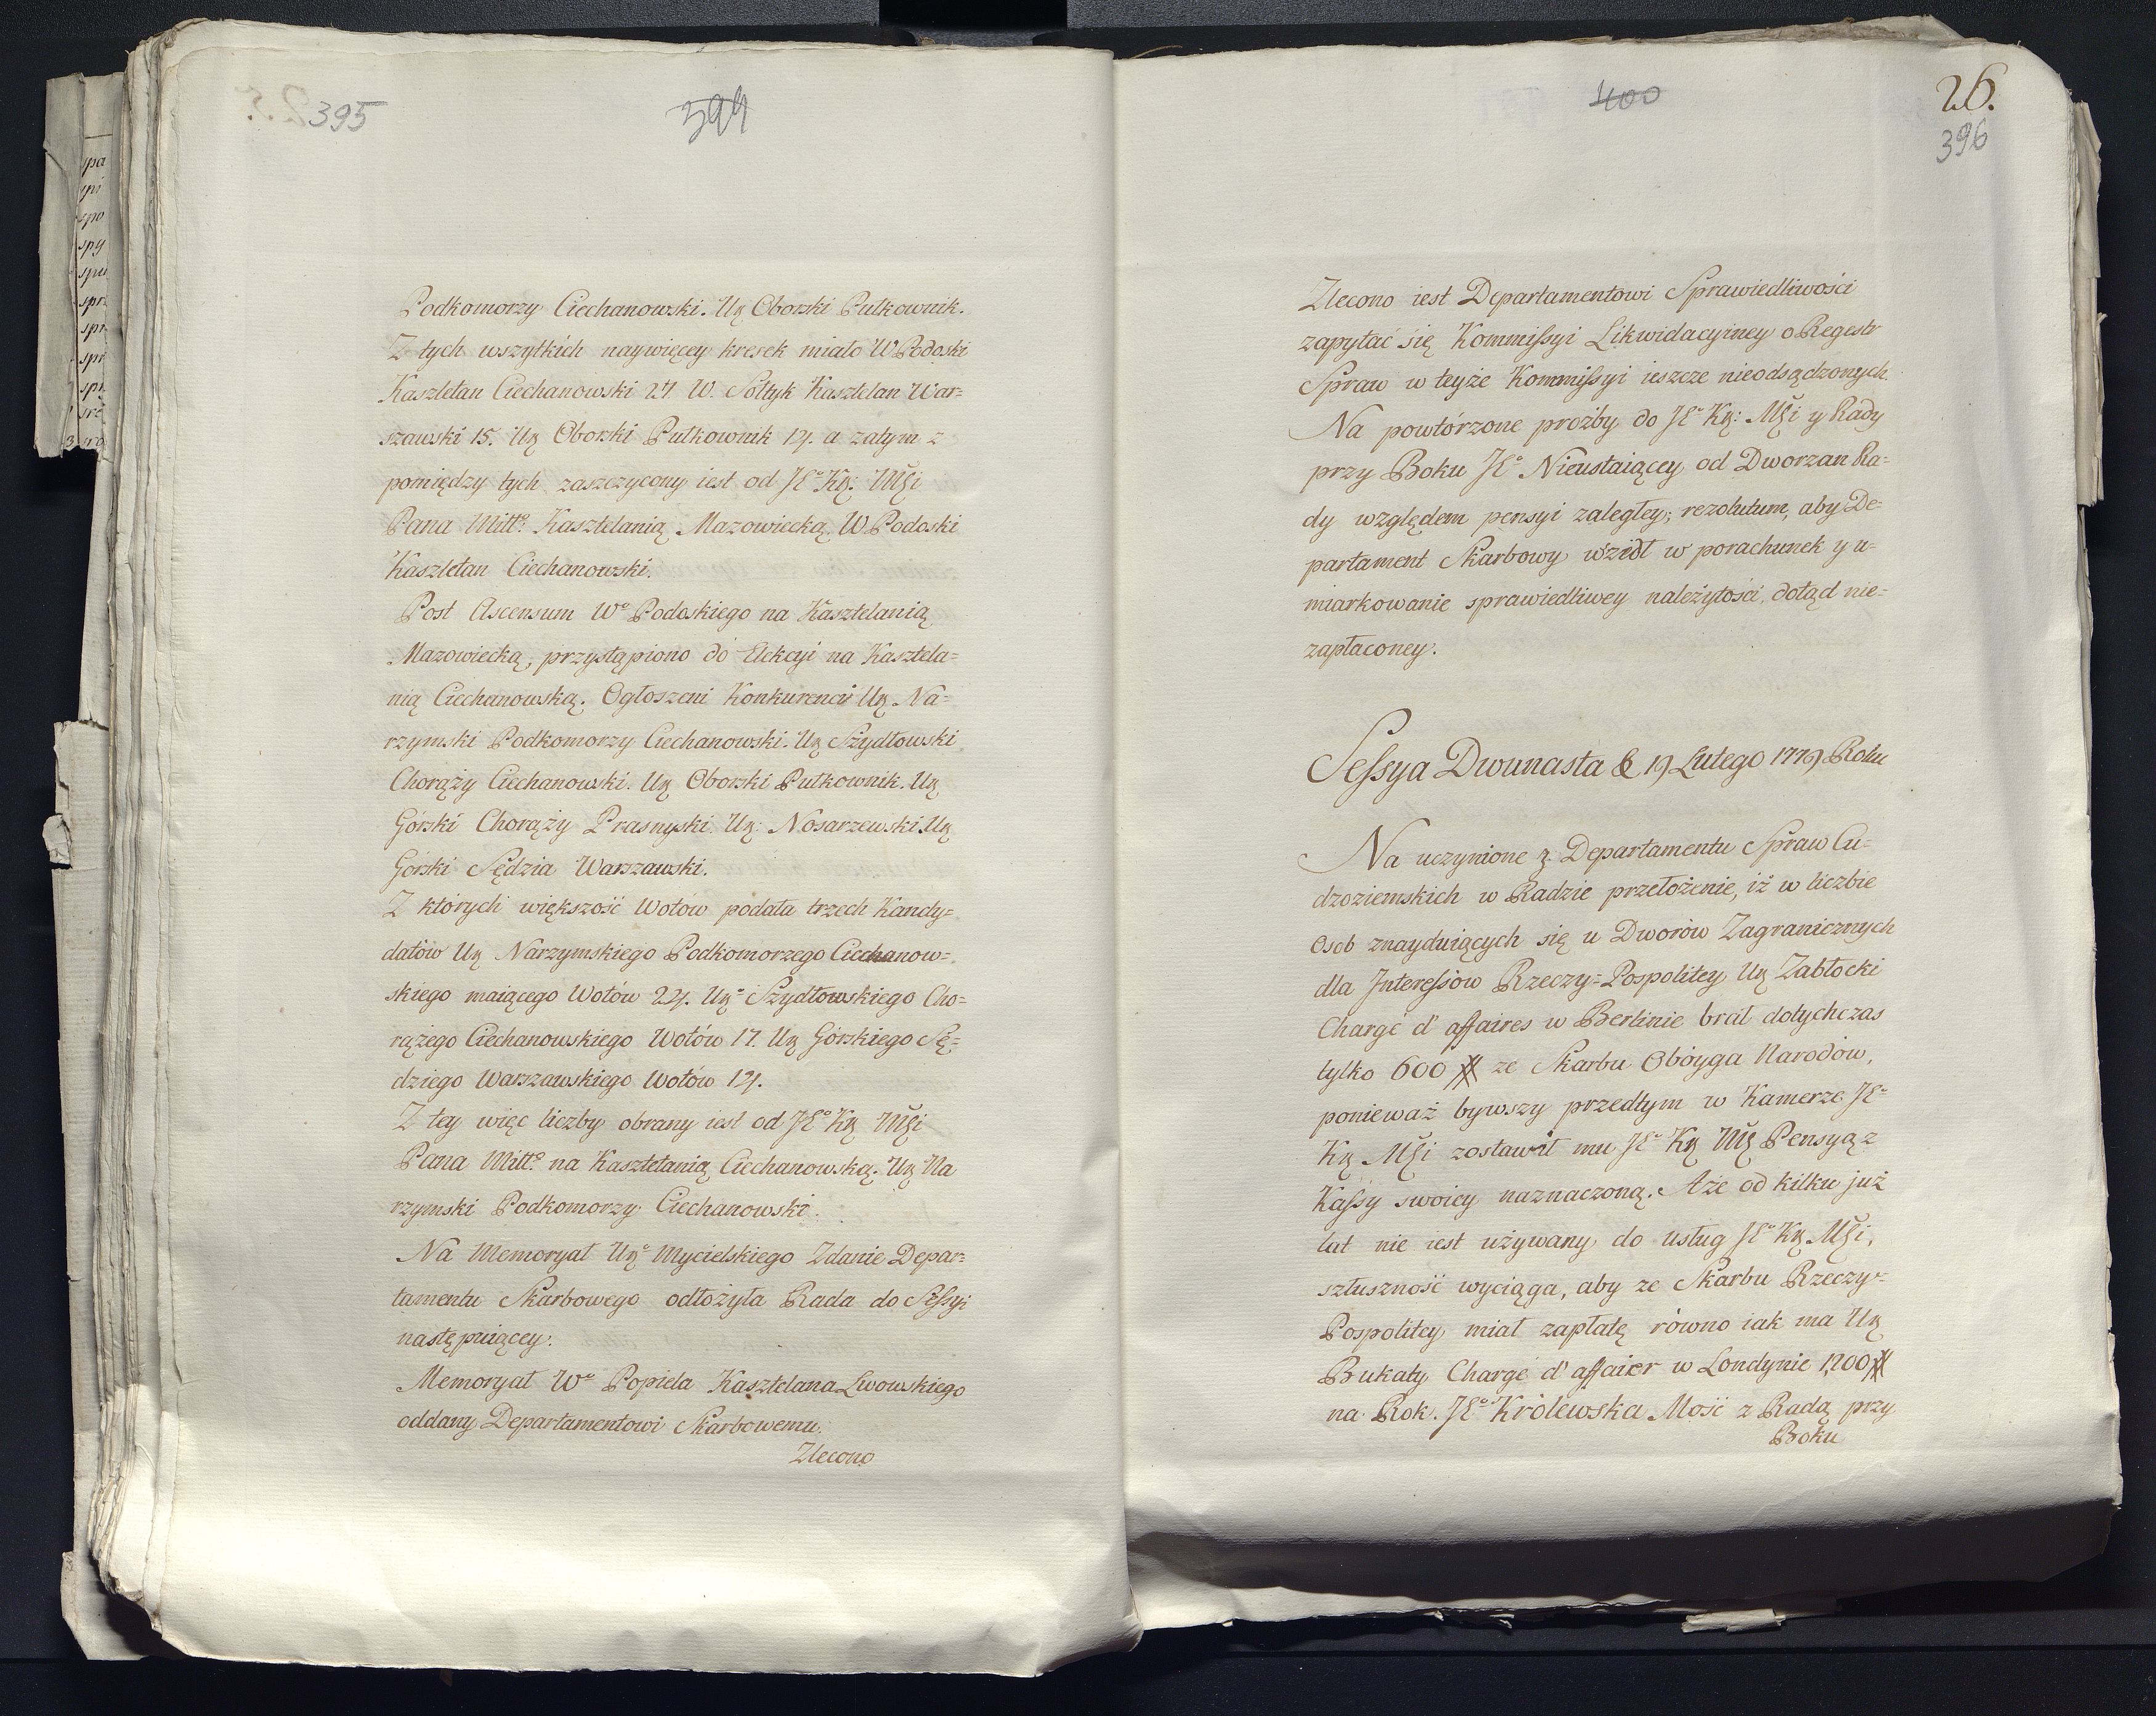 395
399
Podkomorzy Ciechanowski. Ur Oborski Pułkownik.
Z tych wszytkich naywięcey kresek miało W Podoski
Kasztelan Ciechanowski 24 W. Sołtyk Kasztelan War=
szawski 15. Ur Oborski Pułkownik 14. a zatym z
pomiędzy tych zaszczycony iest od JEº Kr: Mści
Pana Miłłº Kasztelanią Mazowiecką W Podoski
Kasztelan Ciechanowski.
Post Ascensum Wº Podoskiego na Kasztelanią
Mazowiecką, przystąpiono do Elekcyi na Kasztela=
nią Ciechanowską. Ogłoszeni Konkurenci Ur Na=
rzymski Podkomorzy Ciechanowski. Ur Szydłowski
Chorąży Ciechanowski. Ur Oborski Pułkownik. Ur
Górski Chorąży Prasnyski. Ur: Nosarzewski Ur
Górski Sędzia Warszawski.
Z których większość Wotow podała trzech Kandy=
datów Ur Narzymskiego Podkomorzego Ciechanow=
skiego maiącego Wotów 24. Urº Szydłowskiego Cho=
rążego Ciechanowskiego Wotów 17. Ur Górskiego Sę=
dziego Warszawskiego Wotów 14.
Z tey więc liczby obrany iest od JEº Kr Mści
Pana Miłłº na Kasztelanią Ciechanowską. Ur Na
rzymski Podkomorzy Ciechanowski.
Na Memoryał Urº Mycielskiego Zdanie Depar=
tamentu Skarbowego odłożyła Rada do Sessyi
następuiącey.
Memoryał Wº Popiela Kasztelana Lwowskiego
oddany Departamentowi Skarbowemu.
Zlecono
400
26.
396
Zlecono iest Departamentowi Sprawiedliwości
zapytać się Kommissyi Likwidacyiney o Regestr
Spraw w teyże Kommissyi ieszcze nieodsądzonych.
Na powtórzone prozby do JEº Kr: Mści y Rady
przy Boku JEº Nieustaiącey od Dworzan Ra=
dy względem pensyi zaległey; rezolutum, aby De=
partament Skarbowy wziół w porachunek y u=
miarkowanie sprawiedliwey należytości, dotąd nie=
zapłaconey.
Sessya Dwunasta D 19 Lutego 1779 Roku
Na uczynione z Departamentu Spraw Cu=
dzoziemskich w Radzie przełożenie, iż w liczbie
Osob znayduiących się u Dworów Zagranicznych
dla Interessow Rzeczy=Pospolitey Ur Zabłocki
Chargé d' affaires w Berlinie brał dotychczas
tylko 600 # ze Skarbu Oboyga Narodow,
ponieważ bywszy przedtym w Kamerze JEº
Kr Mści zostawił mu JEº Kr Mść Pensyą z
Kassy swoiey naznaczoną. A że od kilku już
lat nie iest używany do usług JEº Kr Mści,
sztuszność wyciąga, aby ze Skarbu Rzeczy=
Pospolitey miał zapłatę równo iak ma Ur
Bukaty Chargé d' affaier w Londynie 1200 #
na Rok. JEº Królewska Mość z Radą przy
Boku